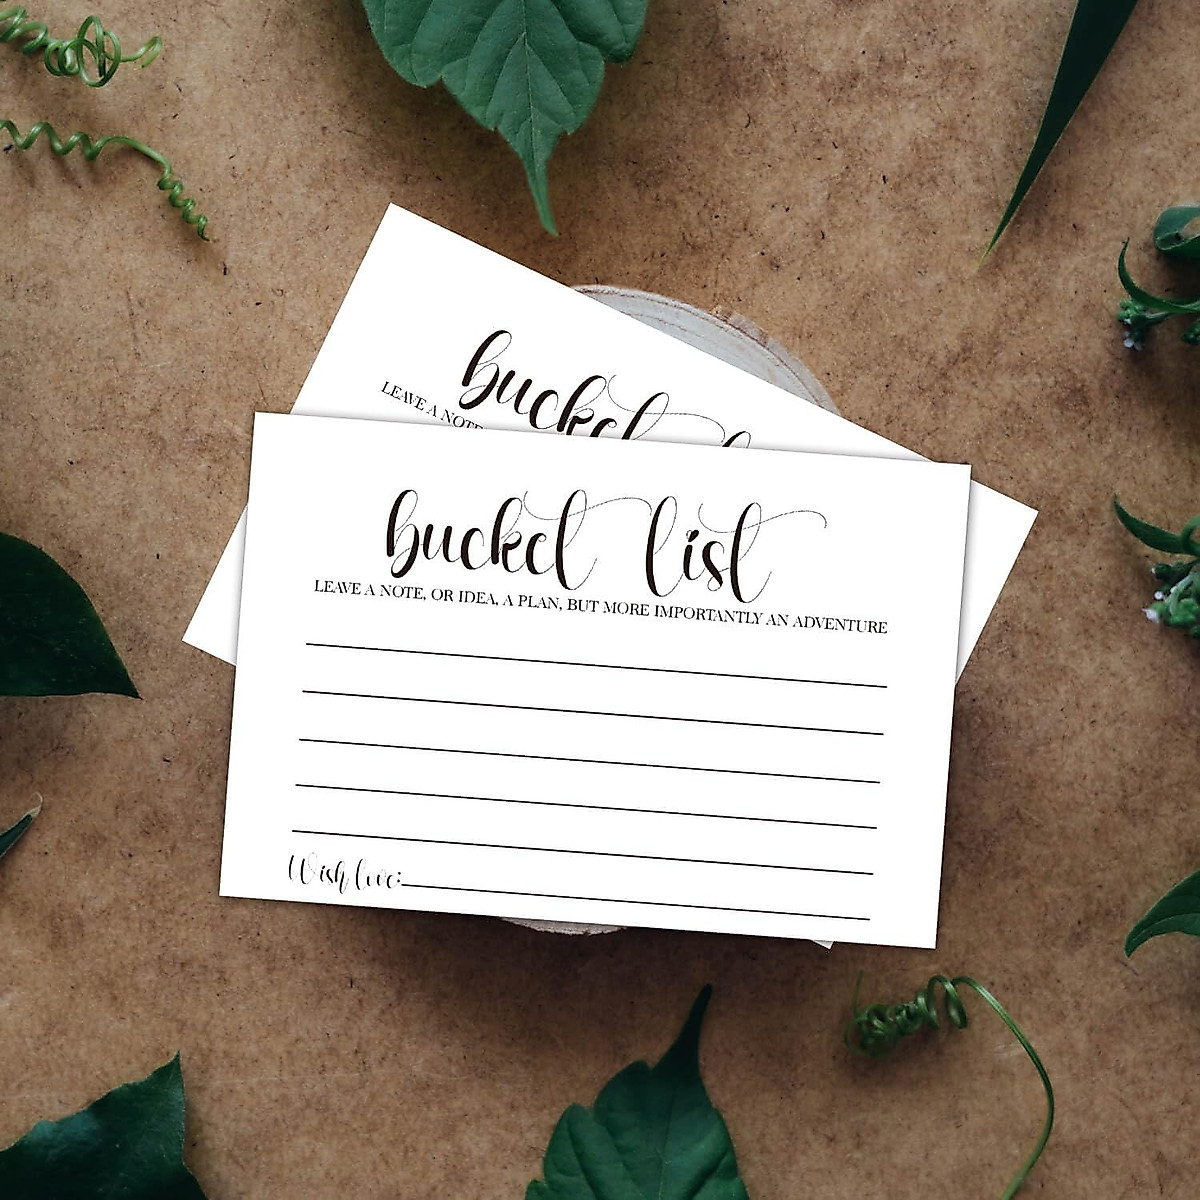 bucket
LEAVE A NOTE
bucket list
LEAVE A NOTE, OR IDEA, A PLAN, BUT MORE IMPORTANTLY AN ADVENTURE
Wish love: